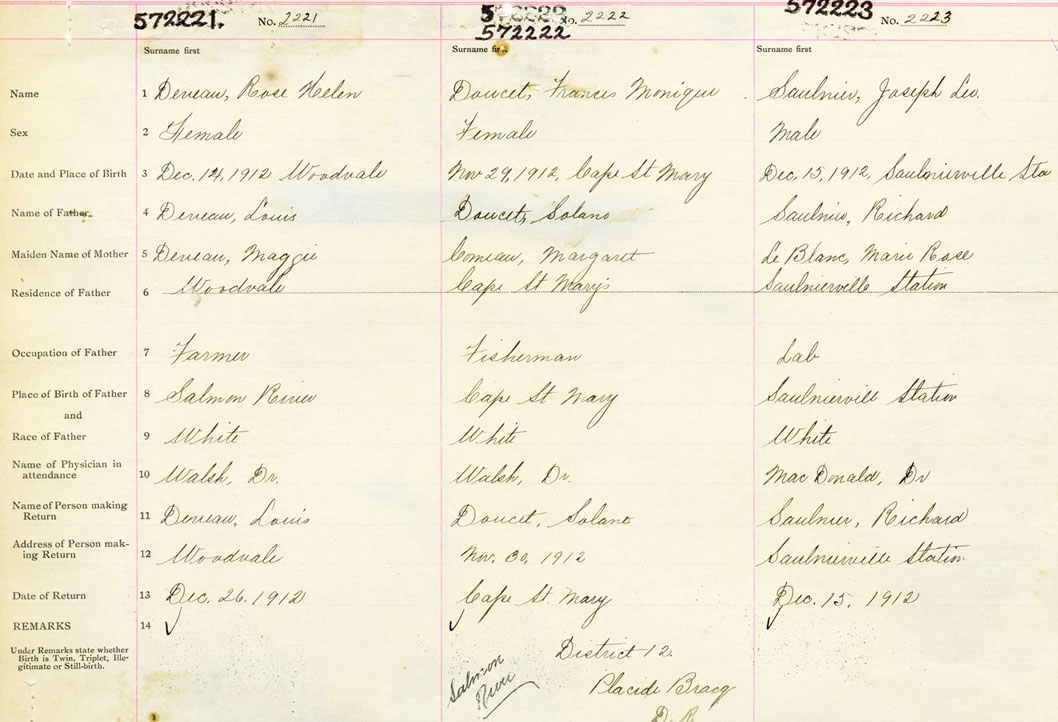 572221. No. 2221 572222 No. 2222 572223 No. 2223
572222
Surname first Surname first Surname first
Name 1 Deveau, Rose Helen Doucet, Francis Monique Saulnier, Joseph Leo.
Sex 2 Female Female Male
Date and Place of Birth 3 Dec. 14, 1912 Woodvale Nov 29, 1912, Cape St Mary Dec. 15, 1912, Saulnierville Sta
Name of Father 4 Deveau, Louis Doucet, Solano Saulnier, Richard
Maiden Name of Mother 5 Deveau, Maggie Comeau, Margaret Le Blanc, Marie Rose
Residence of Father 6 Woodvale Cape St Mary's Saulnierville Station
Occupation of Father 7 Farmer Fisherman Lab
Place of Birth of Father 8 Salmon River Cape St Mary Saulnierville Station
and
Race of Father 9 White White White
Name of Physician in
attendance 10 Walsh, Dr. Walsh, Dr. Mac Donald, Dr
Name of Person making
Return 11 Deveau, Louis Doucet, Solano Saulnier, Richard
Address of Person mak-
ing Return 12 Woodvale Nov. 30, 1912 Saulnierville Station
Date of Return 13 Dec. 26. 1912 Cape St. Mary Dec. 15, 1912
REMARKS 14
Under Remarks state whether
Birth is Twin, Triplet, Ille-
gitimate or Still-birth.
Salmon
River
District 12.
Placide Bracq
D. R.